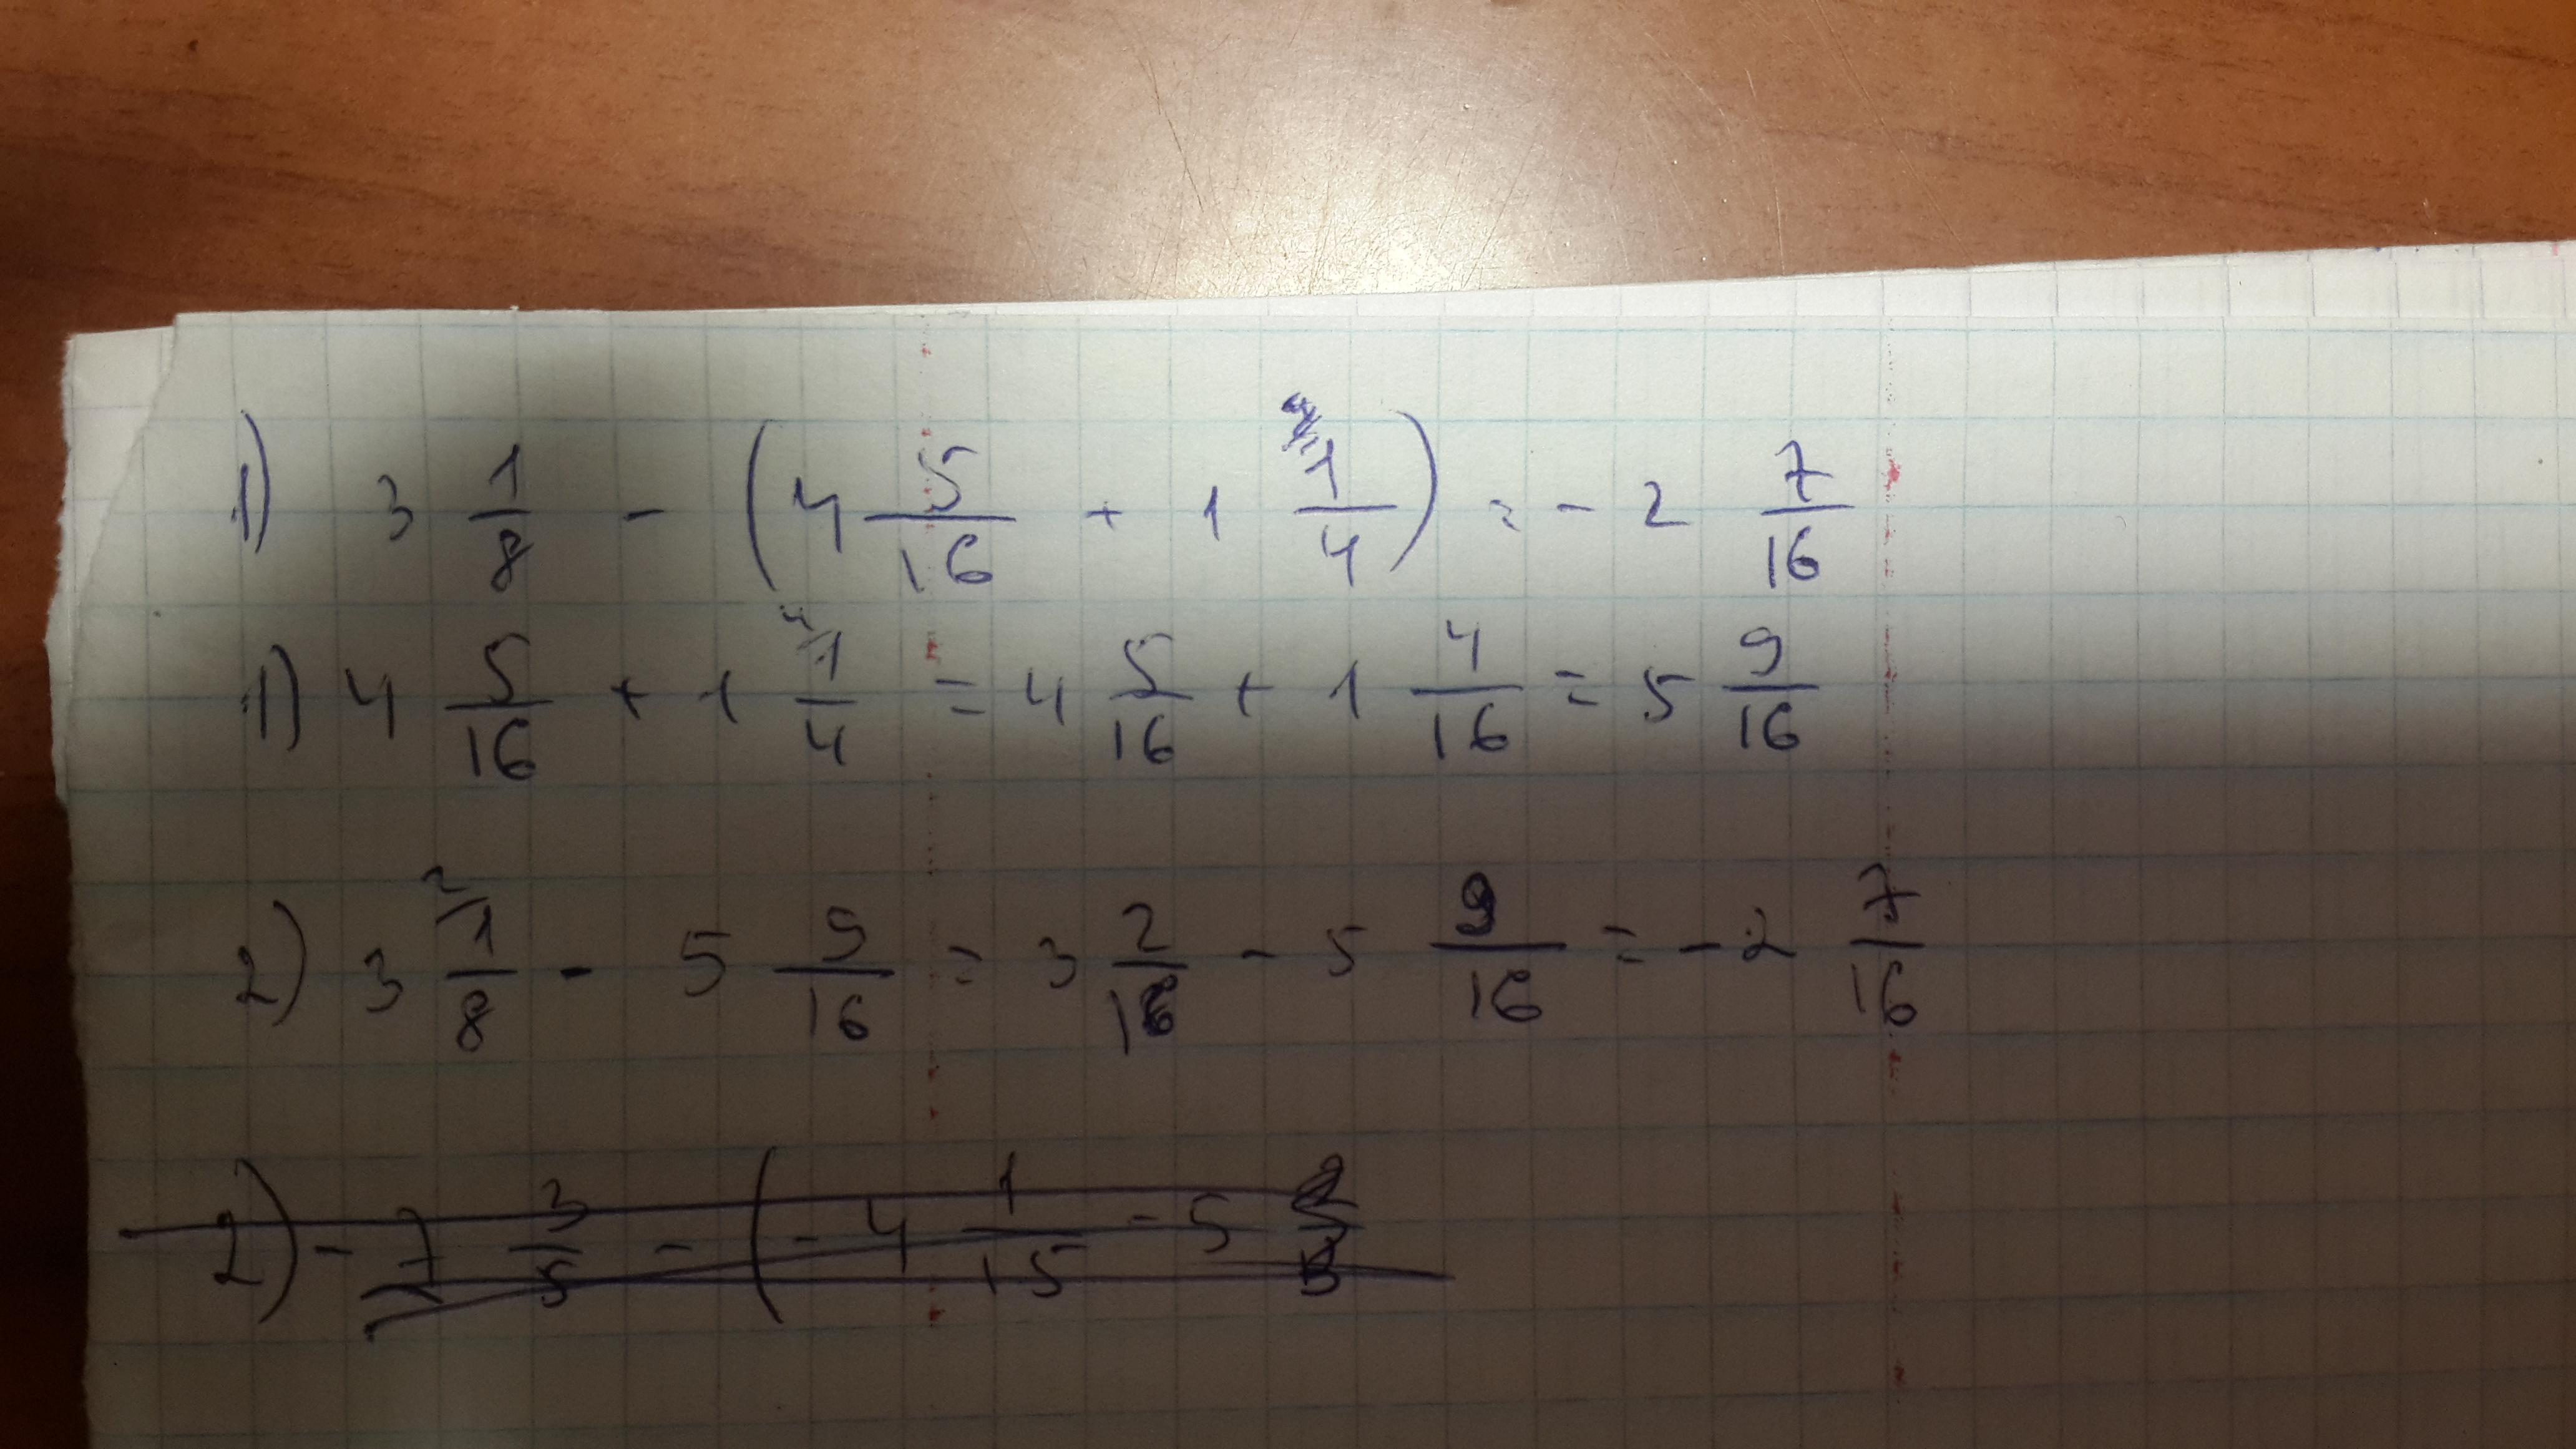 1) 3 1/8 - (4 5/16 + 1 1/4) = - 2 7/16
1) 4 5/16 + 1 4/1/4 = 4 5/16 + 1 4/16 = 5 9/16
2) 3 2/1/8 - 5 9/16 = 3 2/16 - 5 9/16 = - 2 7/16
2) - 7 3/5 - (- 4 1/15 - 5